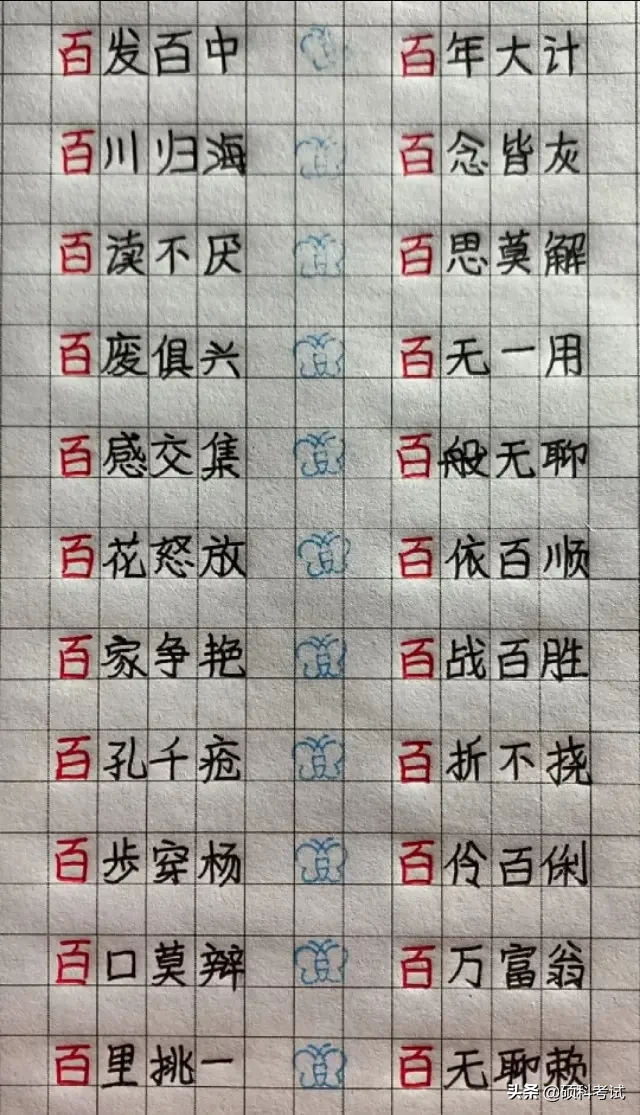 百发百中 百年大计
百川归海 百念皆灰
百读不厌 百思莫解
百废俱兴 百无一用
百感交集 百般无聊
百花怒放 百依百顺
百家争艳 百战百胜
百孔千疮 百折不挠
百步穿杨 百伶百俐
百口莫辩 百万富翁
百里挑一 百无聊赖
头条 @硕科考试